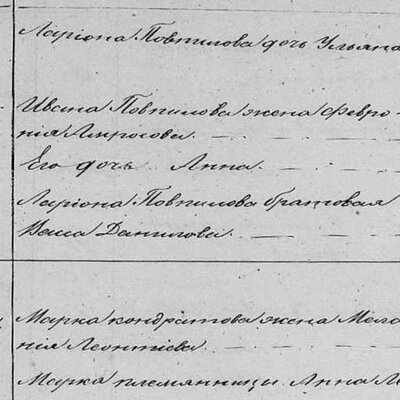 Ларіона Повпилова дочь Ульяна
Ивана Повпилова жена Февро-
нія Амросова.
Его дочь Анна.
Ларіона Повпилова братовая
Васса Данилова.
Марка кондратова жена Мела
нія Леонтіева.
Марка племянницы. Анна